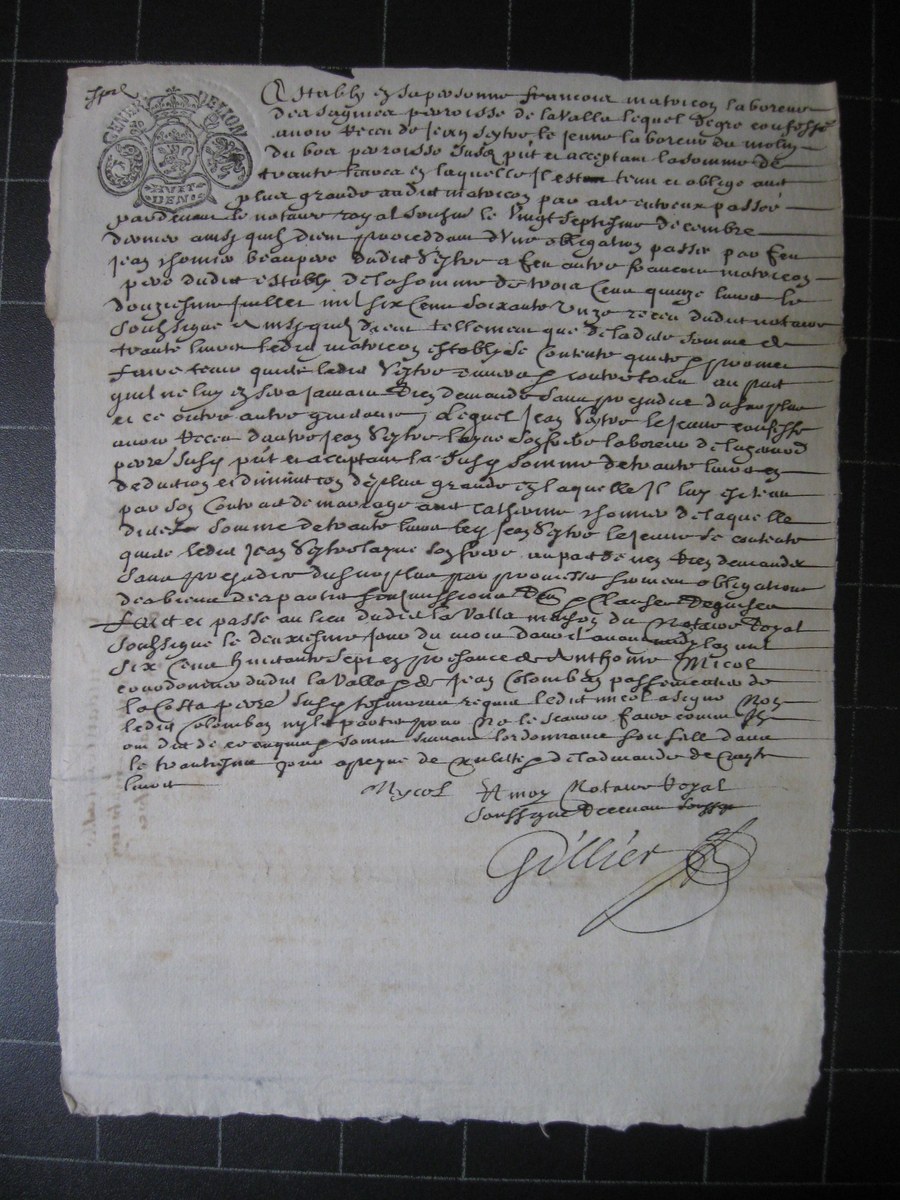 GENER DE LION
HUIT
DEN
Establÿ en sa personne francois matricon laboureur
paroisse de la Valla lequel de gre confesse
avoir receu de Jean Seytre le jeune laboureur du molin
du boa parroisse susd put et acceptant la somme de
trante francz en laquelle Jl estoit tenu et oblige aud
plus grande audit matricon par acte entreux passée
pardevant le notaire royal soubzne le Vingt septiesme décembre
dernier ainsy quils dient proceddant d'Une obligation passée par feu
Jean thomier beaupere dudit Seytre a feu autre francois matricon
pere dudit establÿ de la somme de trois Cens quinze livres le
douziesme Juillet mil six Cens soixante Unze receu dudit notaire
soubsigne Ainsy quils dient tellement que de ladite somme de
trante livres ledit matricon establÿ se Contente quitte et promet
faire tenir quitte ledit Seytre envers et contre tous au pact
quil ne luy en sera jamais Rien demandé sans prejudice du surplus
et ce outre autre quittance lequel Jean Seytre le Jeune confesse
avoir Receu dautre Jean Seytre layne son frere laboureur de
perre susd put et acceptant la susd somme de trante livres en
deduction et diminution de plus grande en laquelle Jl luy est tenu
par son Contract de mariage avec Catherine thomier de laquelle
dicte somme de trante livres led Jean Seytre le Jeune se contente
quitte ledit Jean Seytre layne son frere au pact de nen Rien demander
sans prejudice du surplus par promesse serment obligations
des biens des partie soubmissions Ren et Clauses Requises
faict et passe au lieu dudit la Valla maison du Notaire Royal
soubsigne le deuxiesme Jour du mois davril avant midy lan mil
six Cens huitante sept en presance de Anthoine Micol
courdonnier dudit la Valla et de Jean Colomban passementier de
la Costa perre susd tesmoins requis ledit micol a signe Non
ledit Colomban ny les parties pour Ne le scavoir faire comme Jlz
ont dit de ce enquis et somme suivant lordonnance
le trantiesme jour a peyne de nullitte et de lamande de vingt
livres
Mycol Et moy Notaire Royal
soubsigne Recevant soussigne
Gillier